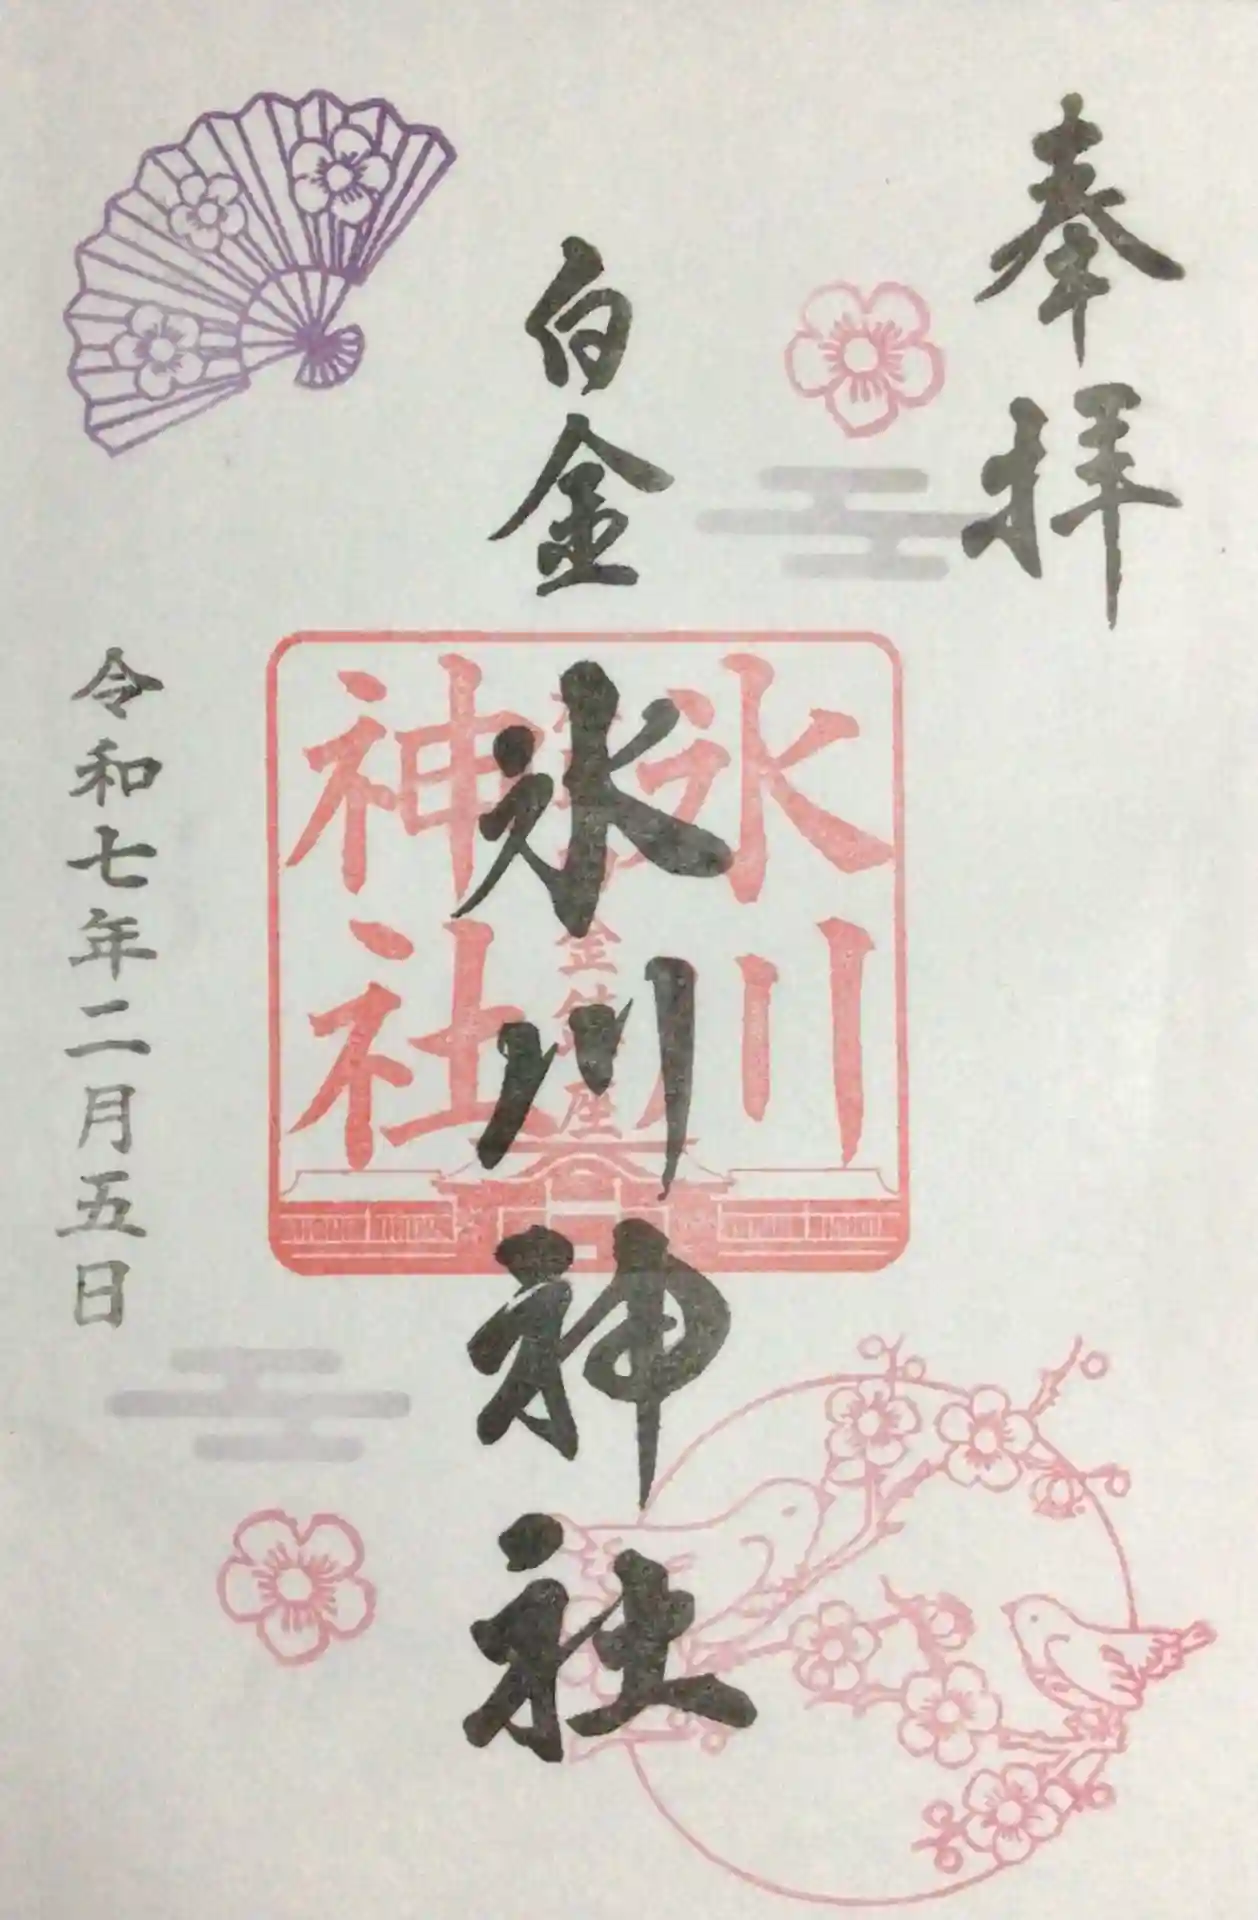 奉拝
白金
氷川神社
氷川
神社
金鎮座
令和七年二月五日